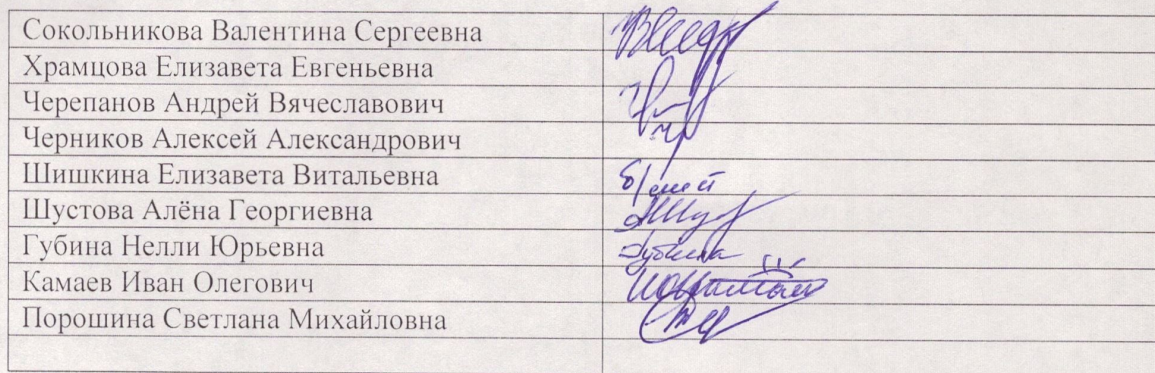 Сокольникова Валентина Сергеевна
Храмцова Елизавета Евгеньевна
Черепанов Андрей Вячеславович
Черников Алексей Александрович
Шишкина Елизавета Витальевна
Шустова Алёна Георгиевна
Губина Нелли Юрьевна Губина
Камаев Иван Олегович
Порошина Светлана Михайловна